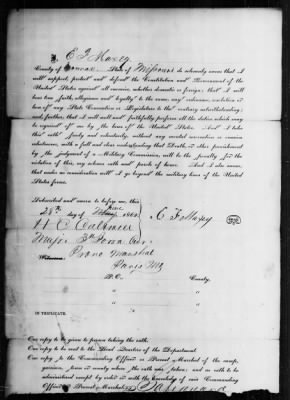 I, C F Maxey
County of Monroe State of Missouri do solemnly swear that I
will support, protect and defend the Constitution and Government of the
United States against all enemies, whether domestic or foreign; that I will
bear true faith, allegiance and loyalty to the same, any ordinance, resolution or
law of any State Convention or Legislature to the contrary notwithstanding;
and further, that I will well and faithfully perform all the duties which may
be required of me by the laws of the United States. And I take
this oath freely and voluntarily, without any mental reservation or evasion
whatsoever, with a full and clear understanding that Death, or other punishment
by the judgment of a Military Commission, will be the penalty for the
violation of this, my solemn oath and parole of honor. And I also swear
that under no consideration will I go beyond the military lines of the United
States forces.
Subscribed and sworn to before me, this
28th day of June 1862
H C Caldwell
Major 3rd Iowa Cav.
Provo Marshal
Witnesses:
Paris Mo
C. F. Maxey
P. O. County,
" "
" "
IN TRIPLICATE.
One copy to be given to person taking the oath.
One copy to be sent to the Head Quarters of the Department.
One copy to the Commanding Officer or Provost Marshal of the camp,
garrison, town or county where the oath was taken; and no oath to be
administered except by order or with the knowledge of some Commanding
Officer or Provost Marshal.